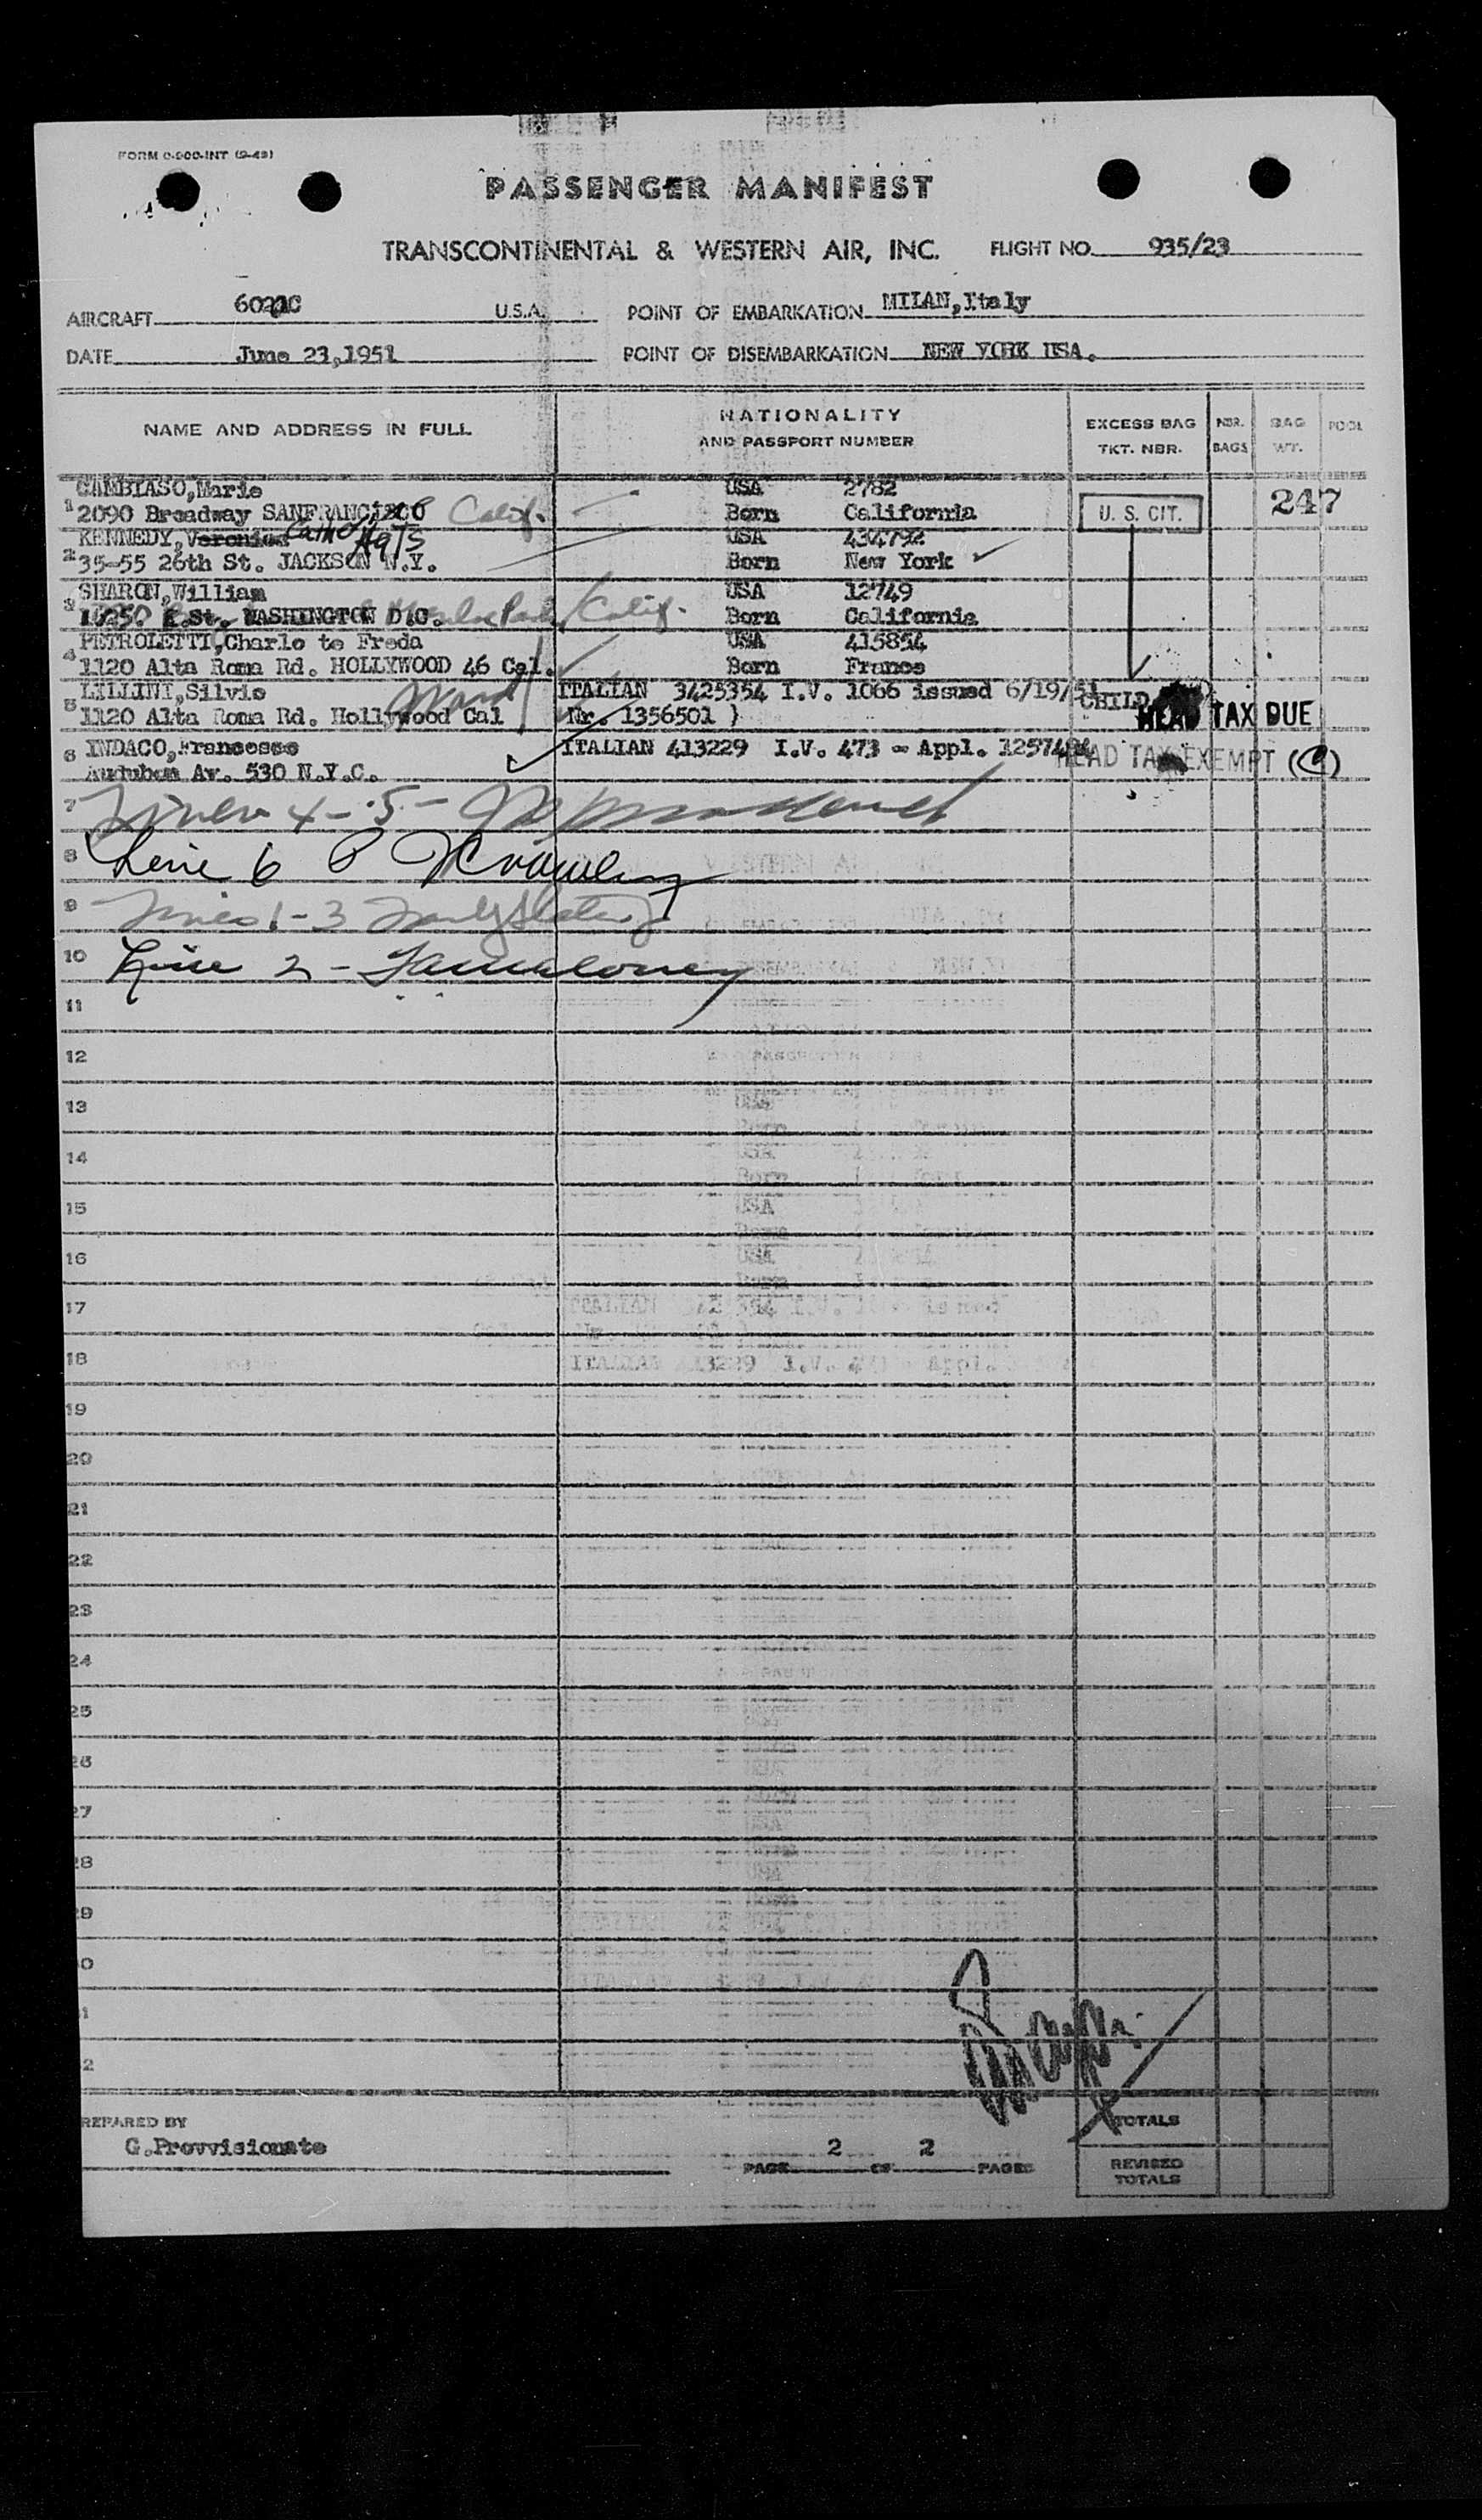 FORM 0-900-INT (9-48)
PASSENGER MANIFEST
TRANSCONTINENTAL & WESTERN AIR, INC. FLIGHT NO. 935/23
AIRCRAFT U.S.A. POINT OF EMBARKATION MILAN,Italy
DATE June 23,1951 POINT OF DISEMBARKATION NEW YORK USA.
NAME AND ADDRESS IN FULL NATIONALITY AND PASSPORT NUMBER EXCESS BAG TKT. NBR. NBR. BAGS BAG WT. POOL
CAMBIASO,Marie USA 2782
1 2090 Broadway SANFRANCISCO Calif. Born California U. S. CIT. 247
KENNEDY,Veronica USA 434792
2 35-55 26th St. JACKSON N.Y. Born New York
SHARON,William USA 12749
3 St. WASHINGTON D.C. Calif. Born California
PETROLETTI,Charlo te Freda USA 415854
4 1120 Alta Roma Rd. HOLLYWOOD 46 Cal. Born France
LILLINI,Silvio ITALIAN 3425354 I.V. 1066 issued 6/19/51 CHILD
5 1120 Alta Roma Rd. Hollywood Cal Nr. 1356501 ) HEAD TAX DUE
6 INDACO,Francesco ITALIAN 413229 I.V. 473 - Appl. HEAD TAX EXEMPT (C)
Audubon Av. 530 N.Y.C.
7 Lines 4-5-
8 Line 6
9 Lines 1-3
10 Line 2 -
11
12
13
14
15
16
17
18
19
20
21
22
23
24
25
26
27
28
29
0
1
2
TOTALS
PREPARED BY
G.Provvisionato
PAGE 2 OF 2 PAGES
REVISED TOTALS